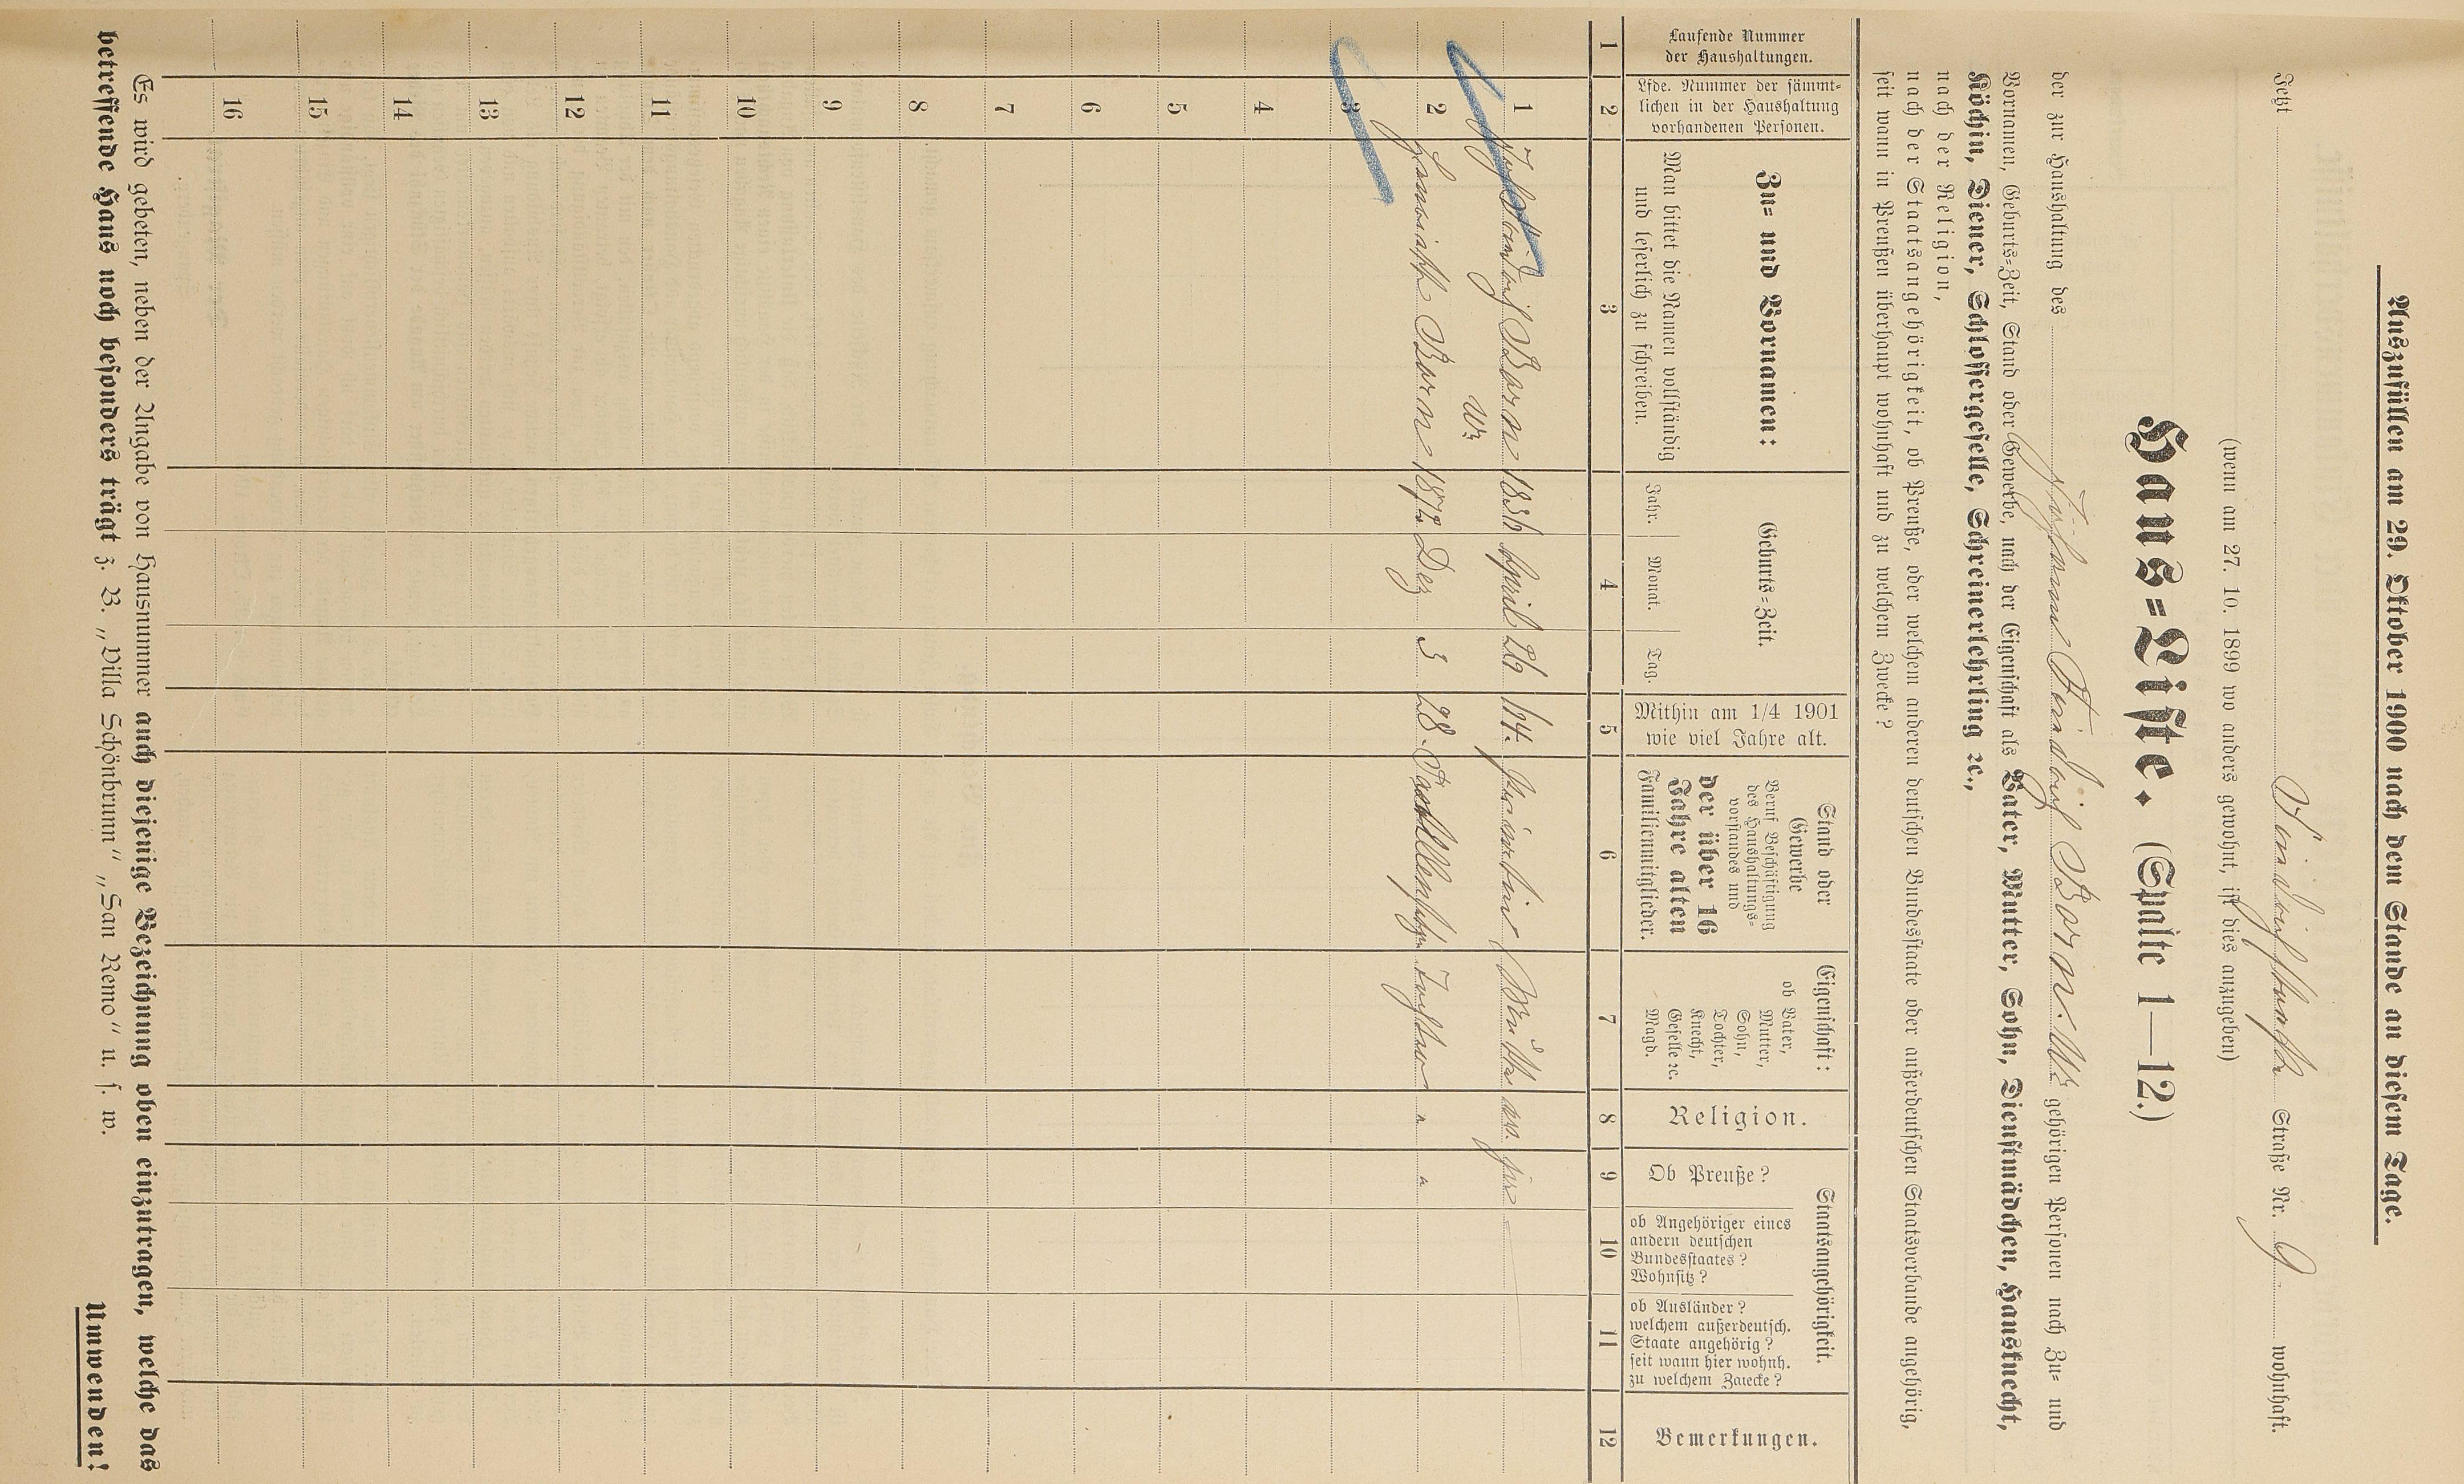 Auszufüllen am 29. Oktober 1900 nach dem Stande an diesem Tage.
Jetzt Straße Nr. 9 wohnhaft.
(wenn am 27. 10. 1899 wo anders gewohnt, ist dies anzugeben)
Haus=Liste. (Spalte 1—12.)
der zur Haushaltung des Johann Born Ww gehörigen Personen nach Zu= und
Vornamen, Geburts=Zeit, Stand oder Gewerbe, nach der Eigenschaft als Vater, Mutter, Sohn, Dienstmädchen, Hausknecht,
Köchin, Diener, Schlossergeselle, Schreinerlehrling ꝛc.,
nach der Religion,
nach der Staatsangehörigkeit, ob Preuße, oder welchem anderen deutschen Bundesstaate oder außerdeutschen Staatsverbande angehörig,
seit wann in Preußen überhaupt wohnhaft und zu welchem Zwecke?
Laufende Nummer
der Haushaltungen.
Lfde. Nummer der sämmt=
lichen in der Haushaltung
vorhandenen Personen.
Zu= und Vornamen:
Man bittet die Namen vollständig
und leserlich zu schreiben.
Geburts=Zeit.
Jahr.
Monat.
Tag.
Mithin am 1/4 1901
wie viel Jahre alt.
Stand oder
Gewerbe
Beruf Beschäftigung
des Haushaltungs=
vorstandes und
der über 16
Jahre alten
Familienmitglieder.
Eigenschaft:
ob Vater,
Mutter,
Sohn,
Tochter,
Knecht,
Geselle ꝛc.
Magd.
Religion.
Staatsangehörigkeit.
Ob Preuße?
ob Angehöriger eines
andern deutschen
Bundesstaates?
Wohnsitz?
ob Ausländer?
welchem außerdeutsch.
Staate angehörig?
seit wann hier wohnh.
zu welchem Zwecke?
Bemerkungen.
1 2 3 4 5 6 7 8 9 10 11 12
1 Born 1836 April 26 64. Mutter ev. ja
Ww
2 Born 1872 Dez 3 28. Tochter " "
3
4
5
6
7
8
9
10
11
12
13
14
15
16
Es wird gebeten, neben der Angabe von Hausnummer auch diejenige Bezeichnung oben einzutragen, welche das
betreffende Haus noch besonders trägt z. B. „Villa Schönbrunn" „San Remo" u. s. w.
Umwenden!